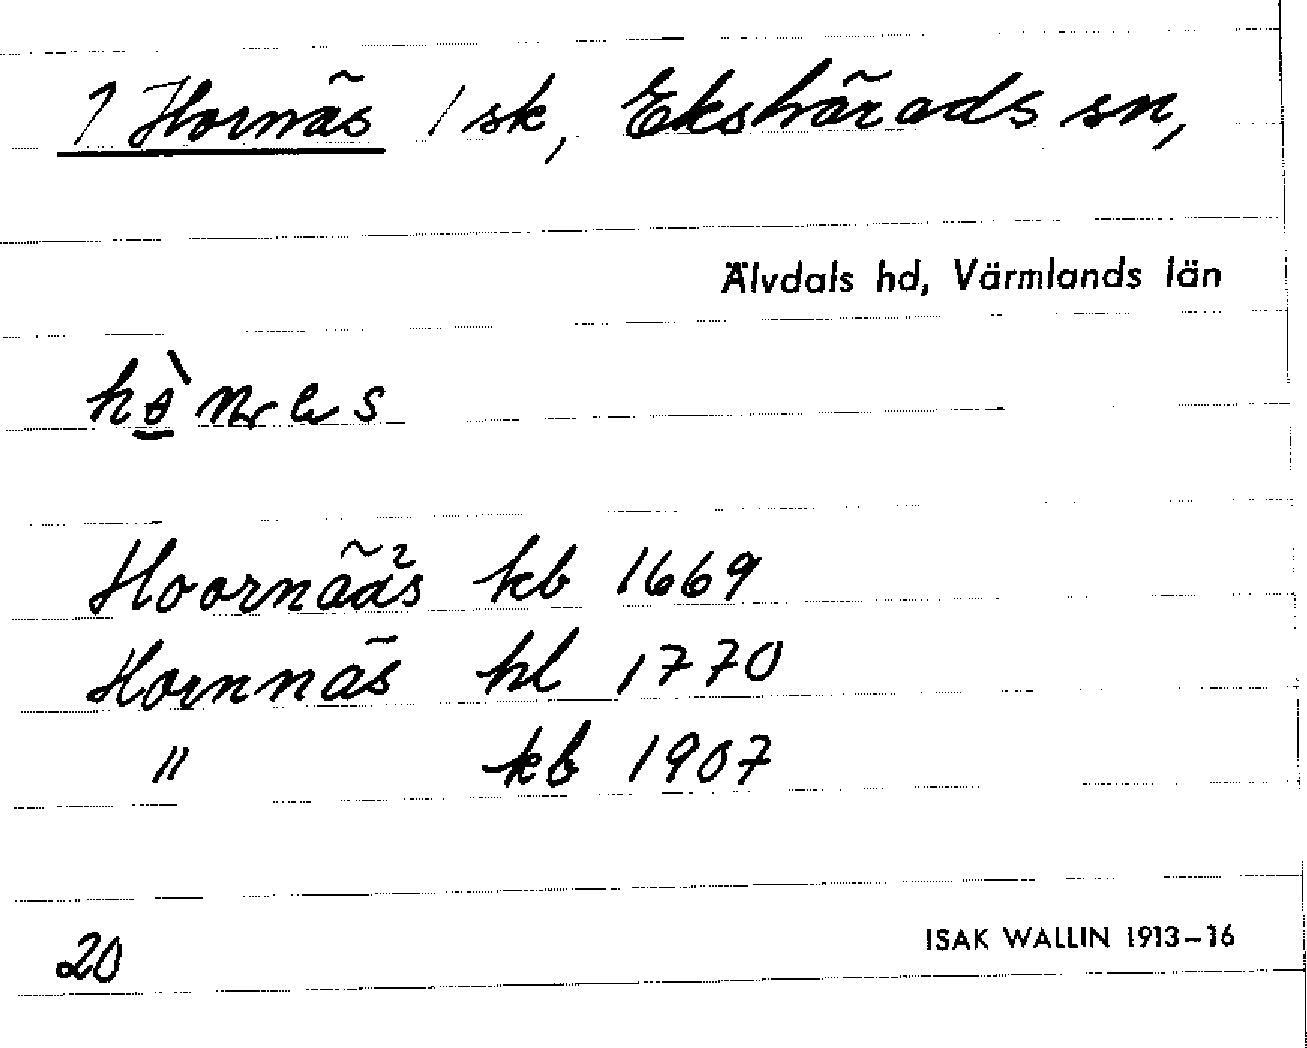 1 Hornäs /sk, Ekshärads sn,
Älvdals hd, Värmlands län
Hoornääs kb 1669
Hornnäs hl 1770
" kb 1907
20
ISAK WALLIN 1913-16